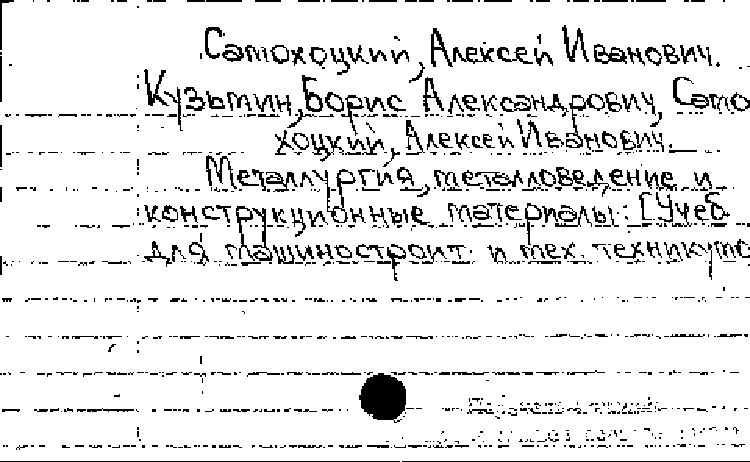 Самохоцкий, Алексей Иванович.
Кузьмин, Борис Александрович, Само
хоцкий, Алексей Иванович.
Металлургия, металловедение и
конструкционные материалы: [Учеб
для машиностроит. и тех. технику­мо